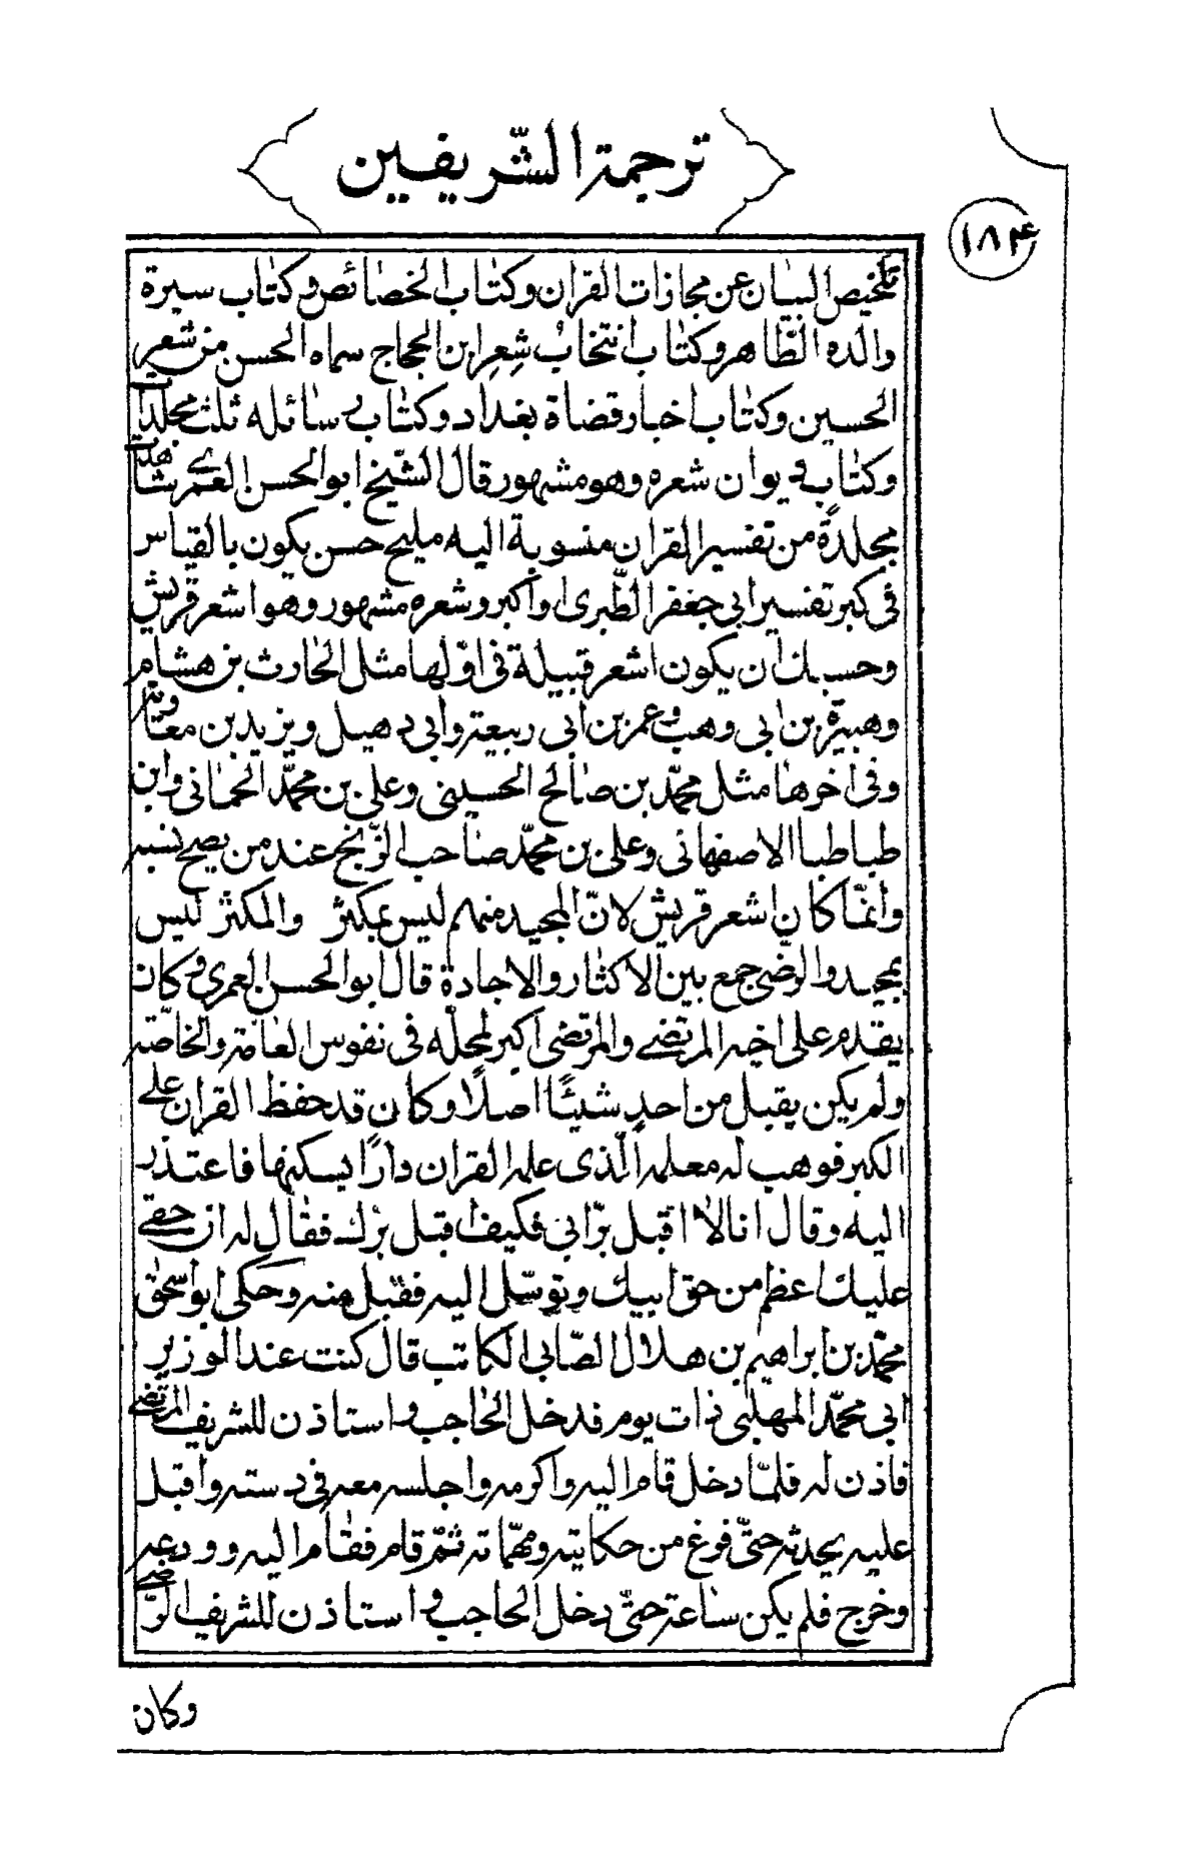 ترجمة الشّريفين
١٨٤
تلخيص البيان عن مجازات القران وكتاب الخصائص وكتاب سيرة
والده الطّاهر وكتاب انتخاب شعر ابن الحجاج سماه الحسن من شعر
الحسين وكتاب اخبار قضاة بغداد وكتاب رسائله ثلث مجلدات
وكتاب ديوان شعره وهو مشهور قال الشّيخ ابو الحسن العمرى شاهدت
مجلدة من تفسير القران منسوبة اليه مليح حسن يكون بالقياس
فى كبر تفسير ابى جعفر الطّبرى او اكبر وشعره مشهور وهو اشعر قريش
وحسبك ان يكون اشعر قبيلة فى اوّلها مثل الحارث بن هشام
وهبيرة بن ابى وهب وعمر بن ابى ربيعة وابى دهيل ويزيد بن معاوية
وفى اخرها مثل محمّد بن صالح الحسينى وعلى بن محمّد الحمانى وابن
طباطبا الاصفهانى وعلى بن محمّد صاحب الزّنج عند من يصحح نسبه
وانّما كان اشعر قريش لانّ المجيد منهم ليس بمكثر والمكثر ليس
بمجيد والرّضى جمع بين الاكثار والاجادة قال ابو الحسن العمرى وكان
يقدم على اخيه المرتضى والمرتضى اكبر لمحلّه فى نفوس العامّة والخاصّة
ولم يكن يقبل من احدٍ شيئًا اصلًا وكان قد حفظ القران على
الكبر فوهب له معلمه الّذى علمه القران دارًا يسكنها فاعتذر
اليه وقال انا لا اقبل برّ ابى فكيف اقبل برّك فقال له ان حقى
عليك اعظم من حق ابيك وتوسّل اليه فقبل منه وحكى ابو اسحٰق
محمّد بن ابراهيم بن هلال الصّابى الكاتب قال كنت عند الوزير
ابى محمّد المهلبى ذات يوم فدخل الحاجب واستاذن للشريف المرتضى
فاذن له فلمّا دخل قام اليه واكرمه واجلسه معه فى دسته واقبل
عليه يحدثه حتّى فرغ من حكايته ومهّماته ثمّ قام فقام اليه وودعه
وخرج فلم يكن ساعة حتّى دخل الحاجب واستاذن للشريف الرّضى
وكان